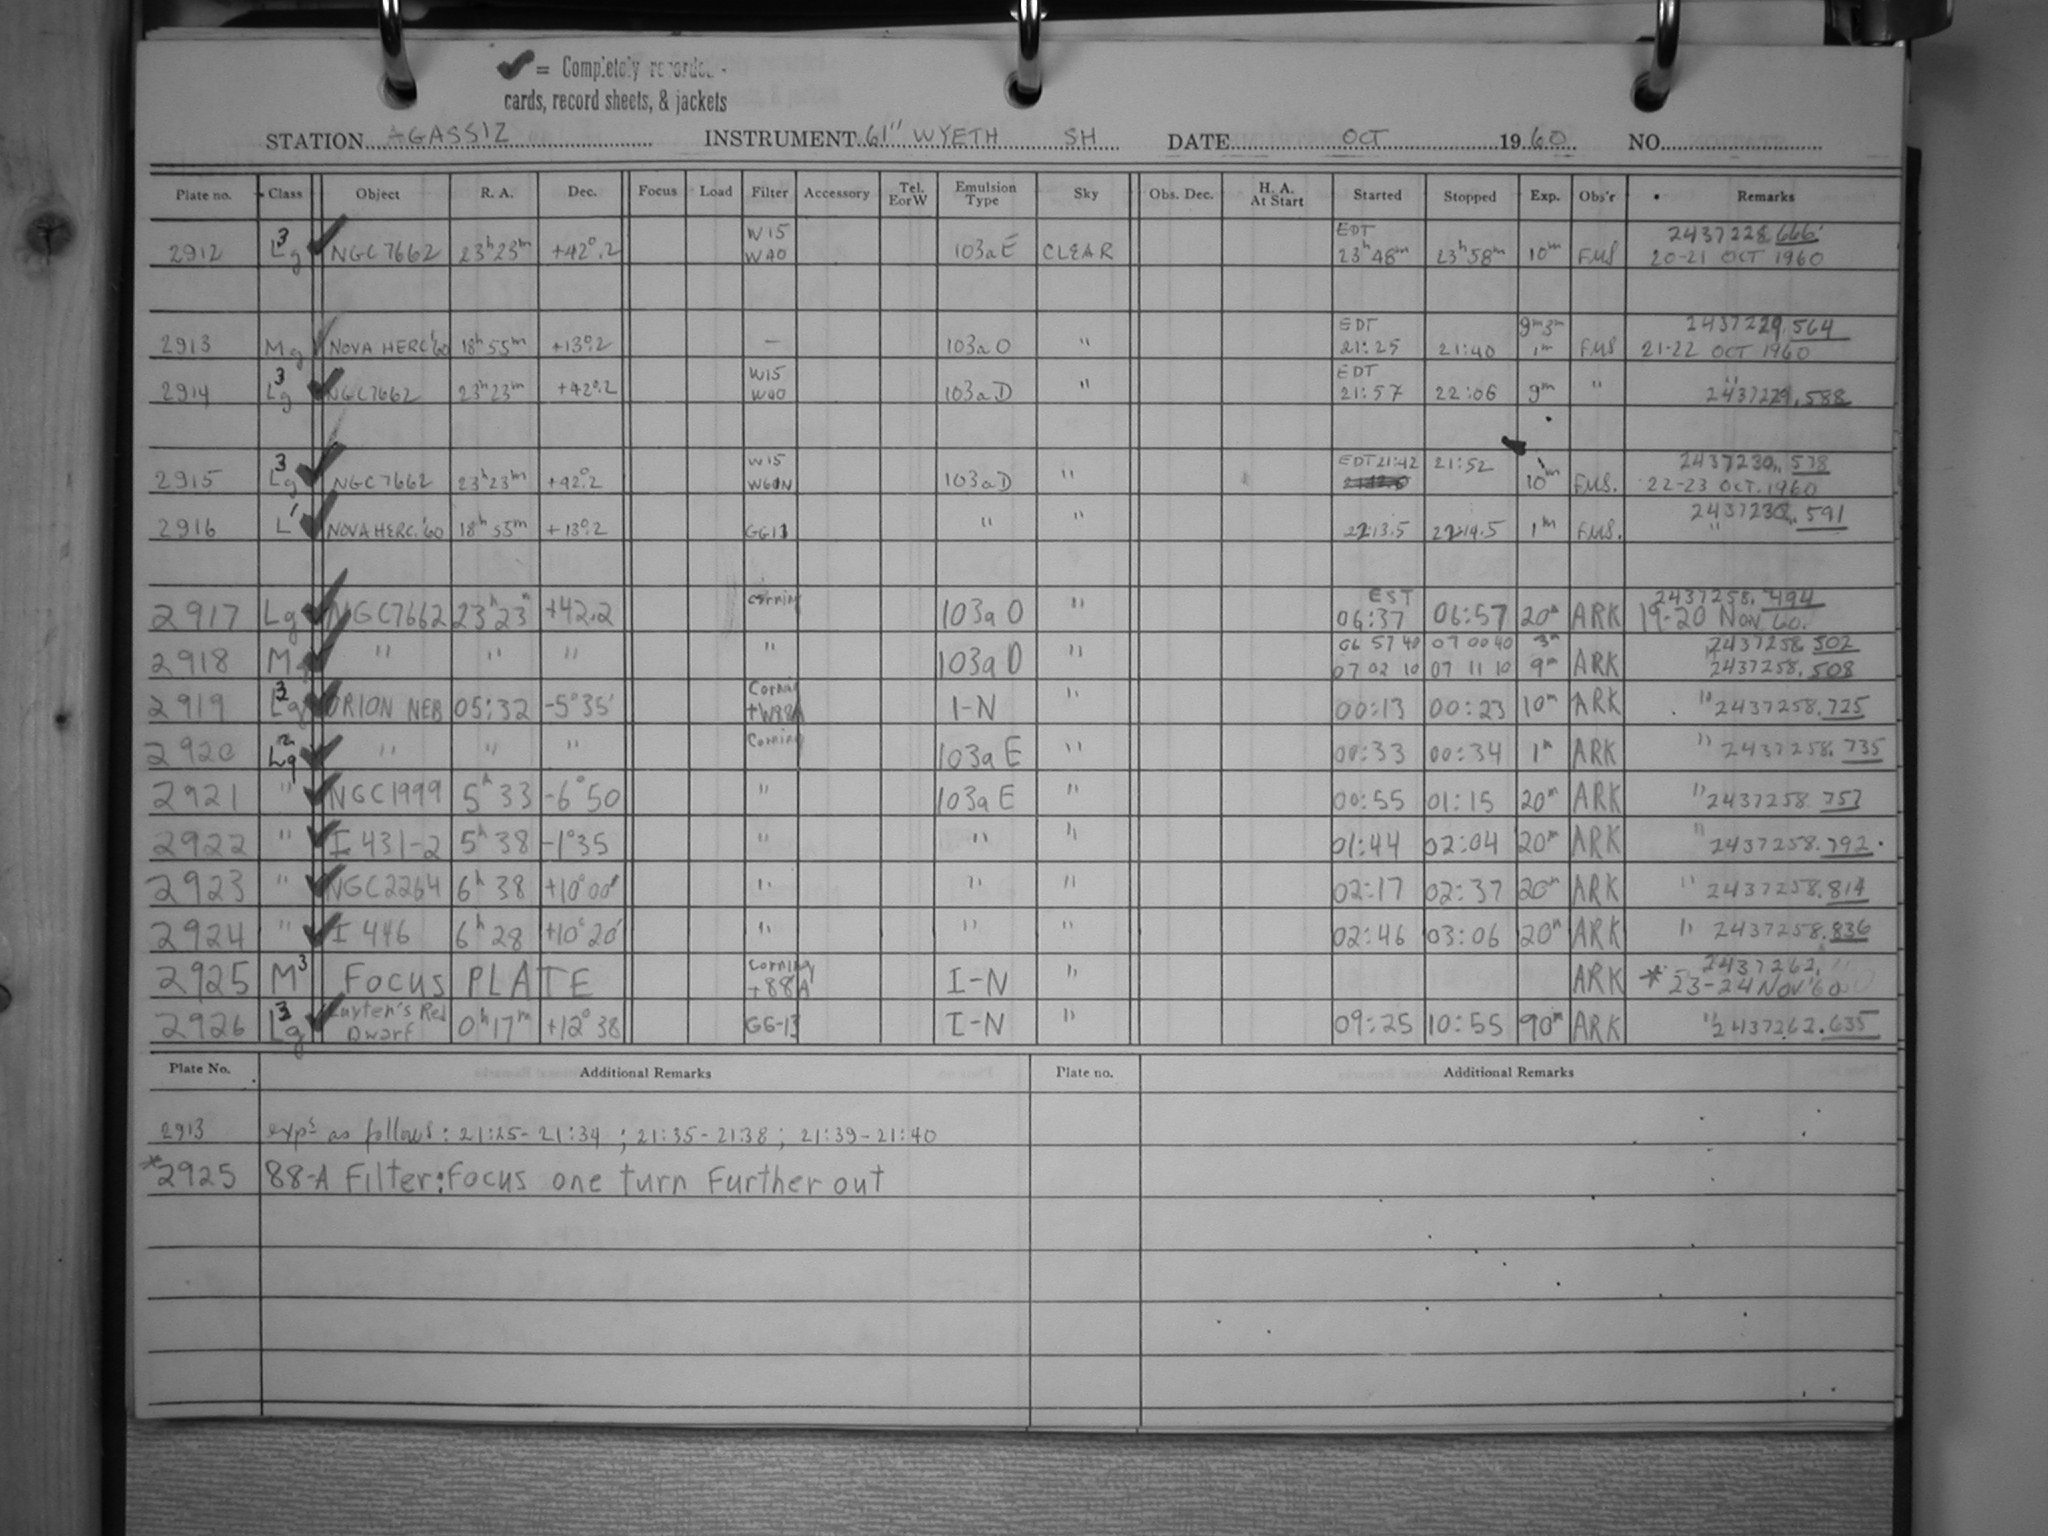 ✓ = Completely recorded -
cards, record sheets, & jackets
STATION AGASSIZ INSTRUMENT 61" WYETH SH DATE OCT 1960 NO.
Plate no. Class Object R. A. Dec. Focus Load Filter Accessory Tel. EorW Emulsion Type Sky Obs. Dec. H. A. At Start Started Stopped Exp. Obs'r Remarks
W15 EDT 2437228.666
2912 Lg3 ✓ NGC 7662 23h23m +42°.2 W40 103aE CLEAR 23h48m 23h58m 10m FMS 20-21 OCT 1960
EDT 9m 3m 2437229.564
2913 Mg ✓ NOVA HERC'60 18h55m +13°.2 - 103aO " 21:25 21:40 1m FMS 21-22 OCT 1960
W15 EDT "
2914 Lg3 ✓ NGC7662 23h23m +42°.2 W40 103aD " 21:57 22:06 9m " 2437229.588
W15 EDT 21:42 21:52 2437230.578
2915 Lg3 ✓ NGC7662 23h23m +42°.2 103aD " 10m FMS. 22-23 OCT. 1960
2437230.591
2916 L' ✓ NOVA HERC.'60 18h55m +13°.2 GG13 " " 22:13.5 22:14.5 1m FMS. "
Corning EST 2437258.494
2917 Lg ✓ NGC7662 23h23m +42.2 103aO " 06:37 06:57 20m ARK 19-20 Nov 60.
06 57 40 07 00 40 3m 2437258.502
2918 M ✓ " " " " 103aD " 07 02 10 07 11 10 9m ARK " 2437258.508
Corning
2919 Lg3 ✓ ORION NEB 05:32 -5°35' +W88A I-N " 00:13 00:23 10m ARK " 2437258.725
2920 Lg2 ✓ " " " Corning 103aE " 00:33 00:34 1m ARK " 2437258.735
2921 " ✓ NGC1999 5h33 -6°50 " 103aE " 00:55 01:15 20m ARK " 2437258.757
2922 " ✓ I 431-2 5h38 -1°35 " " " 01:44 02:04 20m ARK " 2437258.792
2923 " ✓ NGC2264 6h38 +10°00' " " " 02:17 02:37 20m ARK " 2437258.814
2924 " ✓ I 446 6h28 +10°20' " " " 02:46 03:06 20m ARK " 2437258.836
Corning 2437262.
2925 M3 FOCUS PLATE +88A I-N " ARK * 23-24 NOV '60
Luyten's Red
2926 Lg3 ✓ Dwarf 0h17m +12°38 GG-13 I-N " 09:25 10:55 90m ARK " 2437262.635
Plate No. Additional Remarks Plate no. Additional Remarks
2913 exps as follows: 21:25-21:34 ; 21:35-21:38 ; 21:39-21:40
*2925 88-A Filter: Focus one turn Further out